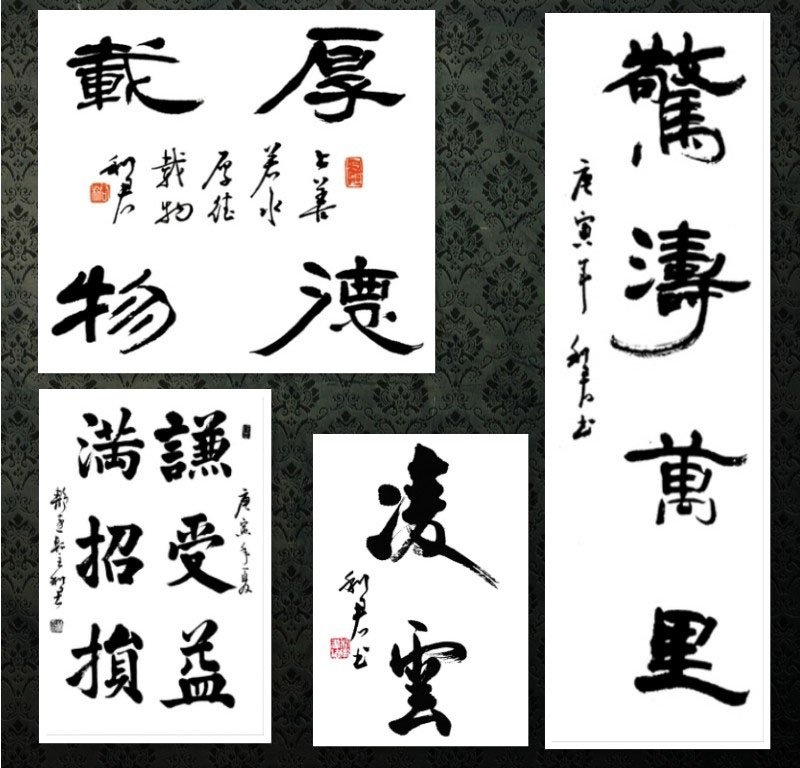 厚德
載物
上善
若水
厚德
載物
利君
驚濤萬里
庚寅年 利君书
庚寅年夏
謙受益
満招損
利君
凌雲
利君书